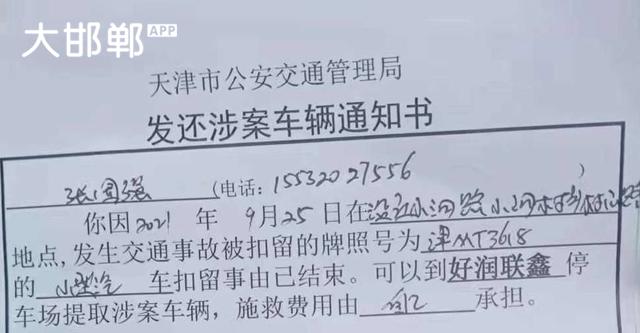 大邯郸 APP
天津市公安交通管理局
发还涉案车辆通知书
张国强 (电话: 15532027556 )
你因 2021 年 9月25日在
地点,发生交通事故被扣留的牌照号为 津MT3618
的 小型汽 车扣留事由已结束。可以到好润联鑫 停
车场提取涉案车辆,施救费用由 自己 承担。